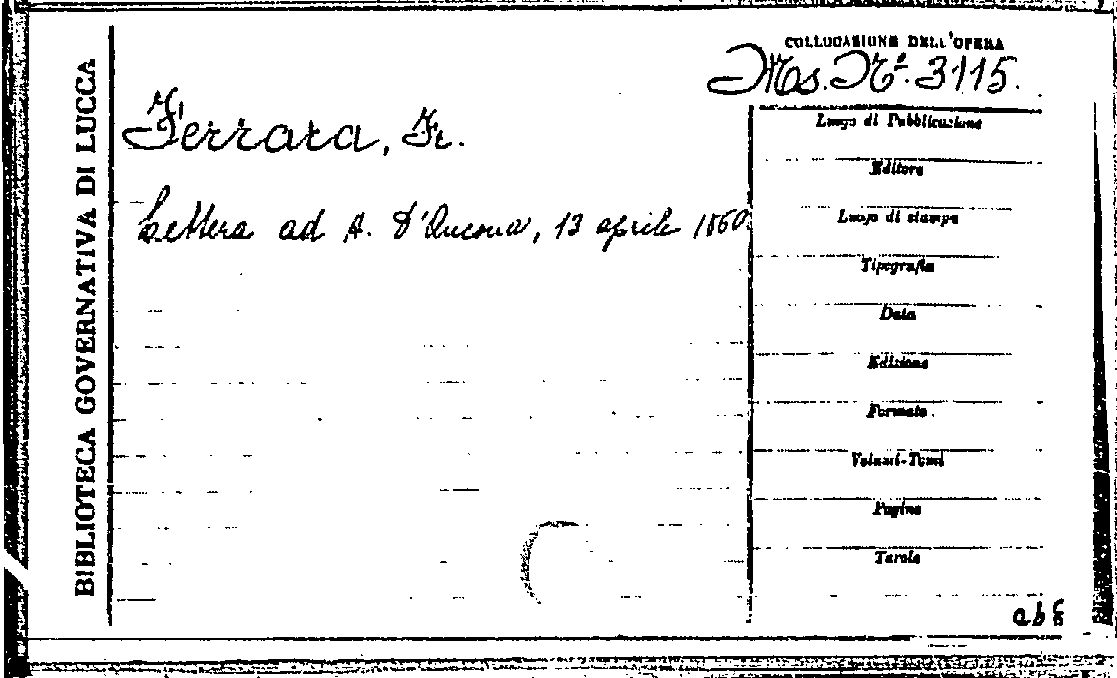 BIBLIOTECA GOVERNATIVA DI LUCCA
COLLOCAZIONE DELL'OPERA
Ms. N.º 3115.
Ferrara, Fr.
Lettera ad A. D'Ancona, 13 aprile 1860.
Luogo di Pubblicazione
Editore
Luogo di stampa
Tipografia
Data
Edizione
Formato
Volumi-Tomi
Pagine
Tavole